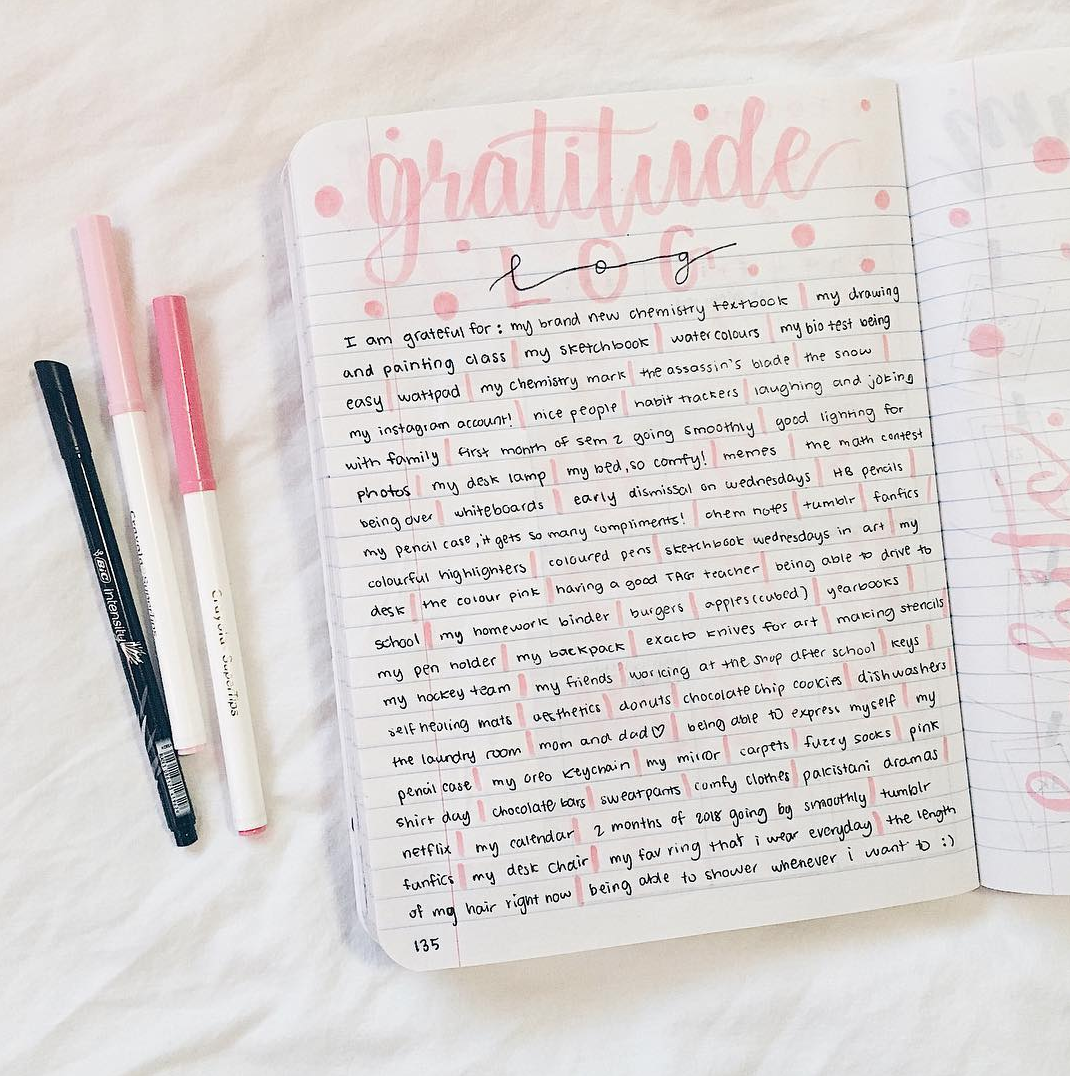 gratitude
LOG
log
I am grateful for : my brand new chemistry textbook | my drawing
and painting class | my sketchbook | watercolours | my bio test being
easy | wattpad | my chemistry mark | the assassin's blade | the snow |
my instagram account! | nice people | habit trackers | laughing and joking
with family | first month of sem 2 going smoothly | good lighting for
photos | my desk lamp | my bed, so comfy! | memes | the math contest
being over | whiteboards | early dismissal on wednesdays | HB pencils |
my pencil case, it gets so many compliments! | chem notes | tumblr | fanfics |
colourful highlighters | coloured pens | sketchbook wednesdays in art | my
desk | the colour pink | having a good TAG teacher | being able to drive to
school | my homework binder | burgers | apples (cubed) | yearbooks |
my pen holder | my backpack | exacto knives for art | making stencils
my hockey team | my friends | working at the shop after school | keys |
self healing mats | aesthetics | donuts | chocolate chip cookies | dishwashers |
the laundry room | mom and dad♡ | being able to express myself | my
pencil case | my oreo keychain | my mirror | carpets | fuzzy socks | pink
shirt day | chocolate bars | sweatpants | comfy clothes | pakistani dramas |
netflix | my calendar | 2 months of 2018 going by smoothly | tumblr
fanfics | my desk chair | my fav ring that i wear everyday | the length
of my hair right now | being able to shower whenever i want to :)
135
BIC intensity
Crayola SuperTips
Crayola SuperTips